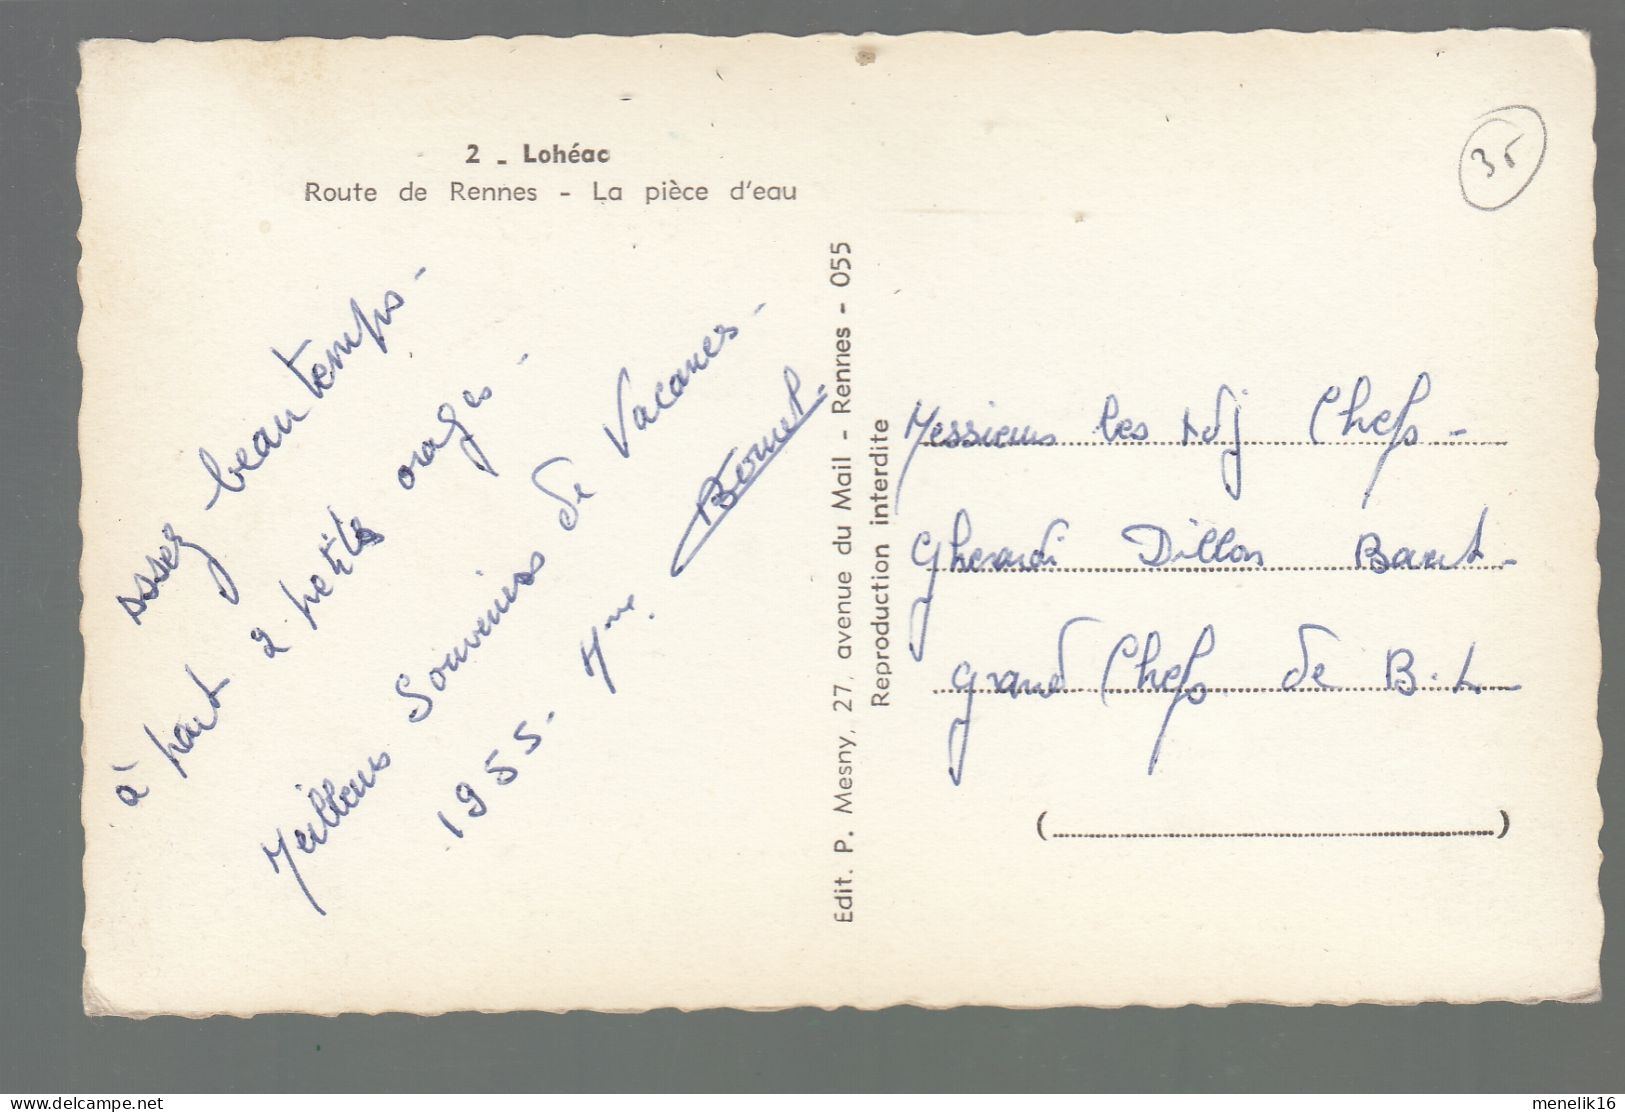 2 - Lohéac
Route de Rennes - La pièce d'eau
assez beau temps -
à part 2 petits orages -
Meilleurs Souvenirs de Vacances -
1955 - Mme. Bornet -
Edit. P. Mesny, 27, avenue du Mail - Rennes - 055
Reproduction interdite
35
Messieurs les Adj Chefs -
Gherardi Dillon Baert -
grand Chefs de B.L
(
)
menelik16